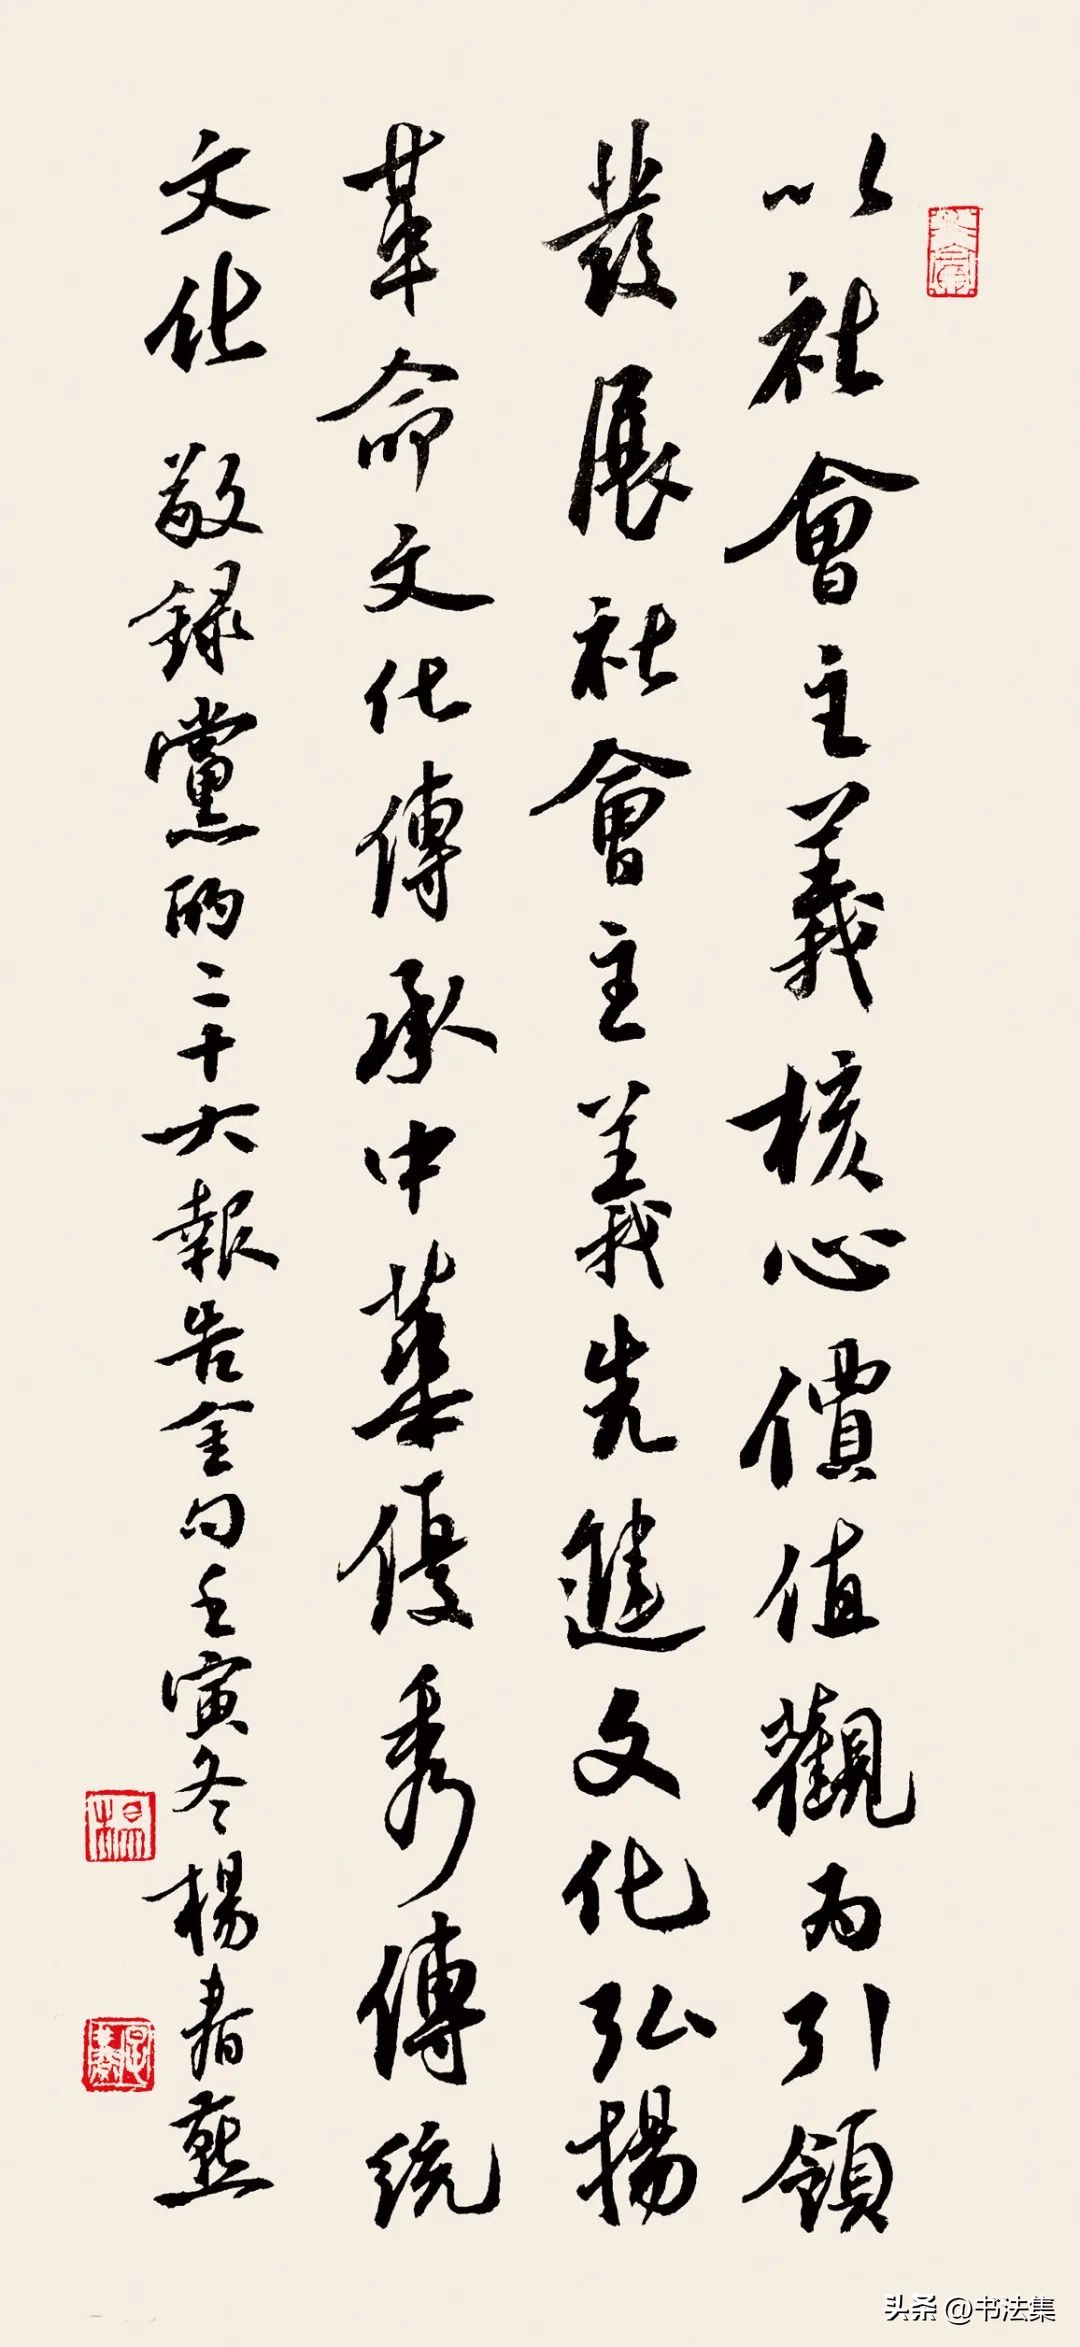 以社會主義核心價值觀为引領
發展社會主義先進文化弘揚
革命文化傳承中華優秀傳統
文化 敬録黨的二十大報告金句壬寅冬楊春燕
頭条 @书法集